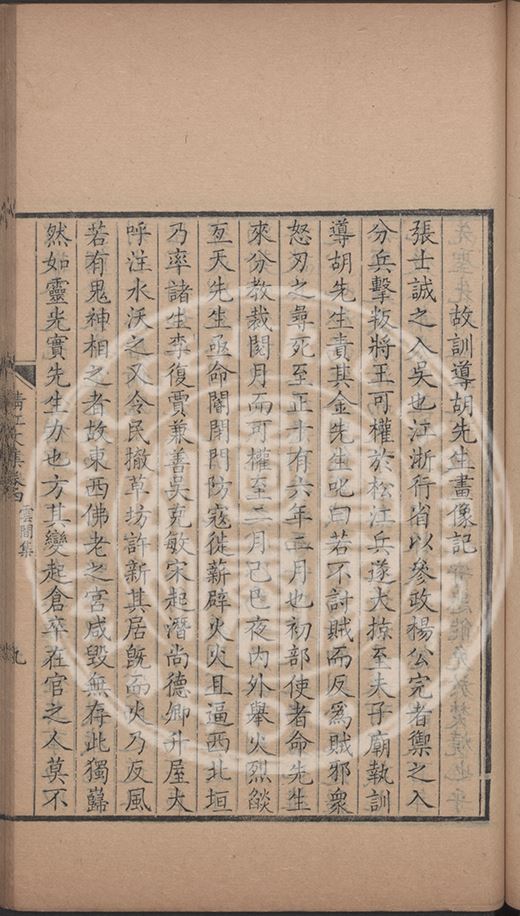 故訓導胡先生畫像記
張士誠之入吳也江浙行省以參政楊公完者禦之入
分兵擊叛將王可權於松江兵遂大掠至夫子廟執訓
導胡先生責其金先生叱曰若不討賊而反爲賊邪衆
怒刃之尋死至正十有六年二月也初部使者命先生
來分教栽閱月而可權至二月己巳夜內外舉火烈燄
亙天先生亟命闔閉門防寇徙薪辟火火且逼西北垣
乃率諸生李復賈兼善吳克敏宋起潛尚德卿升屋大
呼注水沃之又令民撤草坊許新其居旣而火乃反風
若有鬼神相之者故東西佛老之宮咸毀無存此獨巋
然如靈光實先生力也方其變起倉卒在官之人莫不
清江文集卷四
雲間集
九